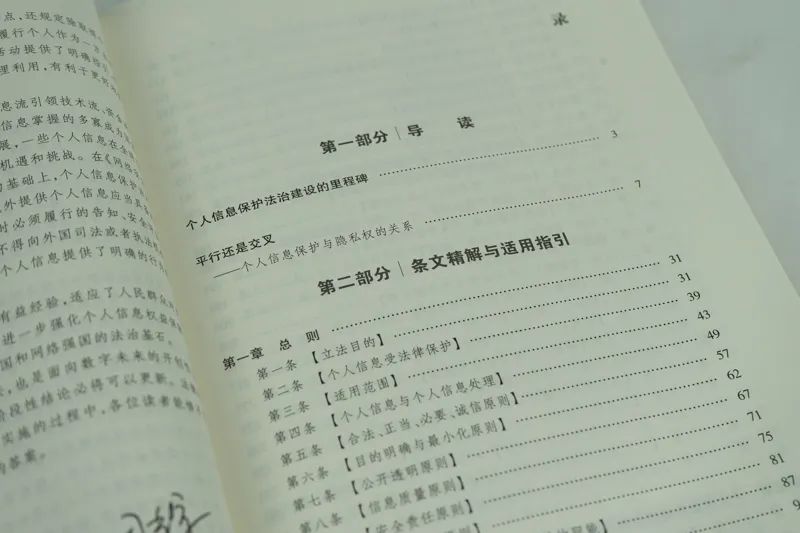 点，还规定除取得
履行个人作为一方
活动提供了明确
理利用，有利于更好
息流引领技术流、资金
信息掌握的多寡成为
展，一些个人信息在全
机遇和挑战。在《网络
的基础上，个人信息保护
外提供个人信息应当具
时必须履行的告知、安全
不得向外国司法或者执法机
个人信息提供了明确的行
有益经验，适应了人民群众
进一步强化个人信息权益保
国和网络强国的法治基石。
，也是面向数字未来的开创
阶段性结论必得可以更新。这
实施的过程中，各位读者能够
的答案。
录
第一部分 | 导 读
个人信息保护法治建设的里程碑 3
平行还是交叉 7
——个人信息保护与隐私权的关系
第二部分 | 条文精解与适用指引
第一章 总 则 31
第一条 【立法目的】 31
第二条 【个人信息受法律保护】 39
第三条 【适用范围】 43
第四条 【个人信息与个人信息处理】 49
第五条 【合法、正当、必要、诚信原则】 57
第六条 【目的明确与最小化原则】 62
第七条 【公开透明原则】 67
第八条 【信息质量原则】 71
【安全责任原则】 75
81
87